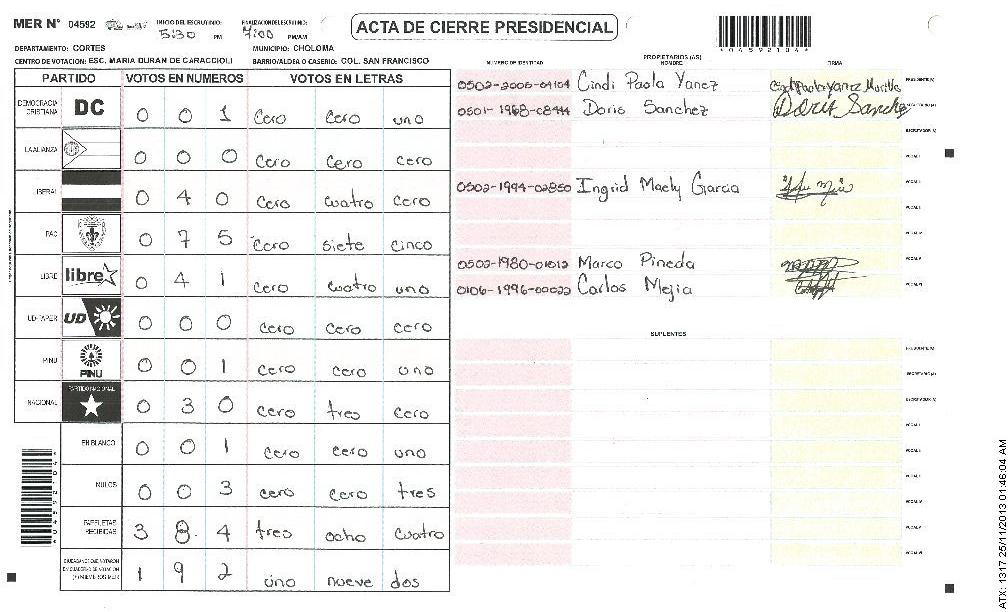 MER N° 04592
INICIO DEL ESCRUTINIO: 5:30 PM
FINALIZACION DEL ESCRUTINIO: 7:00 PM/AM
ACTA DE CIERRE PRESIDENCIAL
045921044
DEPARTAMENTO: CORTES
MUNICIPIO: CHOLOMA
CENTRO DE VOTACION: ESC. MARIA DURAN DE CARACCIOLI
BARRIO/ALDEA O CASERIO: COL. SAN FRANCISCO
PARTIDO VOTOS EN NUMEROS VOTOS EN LETRAS
DEMOCRACIA CRISTIANA DC 0 0 1 cero cero uno
LA ALIANZA 0 0 0 cero cero cero
LIBERAL 0 4 0 cero cuatro cero
PAC 0 7 5 cero siete cinco
LIBRE libre 0 4 1 cero cuatro uno
UD-FAPER UD 0 0 0 cero cero cero
PINU PINU 0 0 1 cero cero uno
NACIONAL PARTIDO NACIONAL 0 3 0 cero tres cero
EN BLANCO 0 0 1 cero cero uno
NULOS 0 0 3 cero cero tres
PAPELETAS RECIBIDAS 3 8 4 tres ocho cuatro
CIUDADANOS QUE VOTARON EN CUADERNO DE VOTACION (+) MIEMBROS MER 1 9 2 uno nueve dos
PROPIETARIOS (AS)
NUMERO DE IDENTIDAD NOMBRE FIRMA
Cindi Paola Yanez PRESIDENTE(A)
Doris Sanchez Doris Sanchez SECRETARIO (A)
ESCRUTADOR (A)
VOCAL I
0502-1994-02850 Ingrid Maely Garcia VOCAL II
VOCAL III
VOCAL IV
0502-1980-01012 Marco Pineda VOCAL V
0106-1996-00022 Carlos Mejia VOCAL VI
SUPLENTES
PRESIDENTE (A)
SECRETARIO (A)
ESCRUTADOR (A)
VOCAL I
VOCAL II
VOCAL III
VOCAL IV
VOCAL V
VOCAL VI
ATX: 1317 25/11/2013 01:46:04 AM